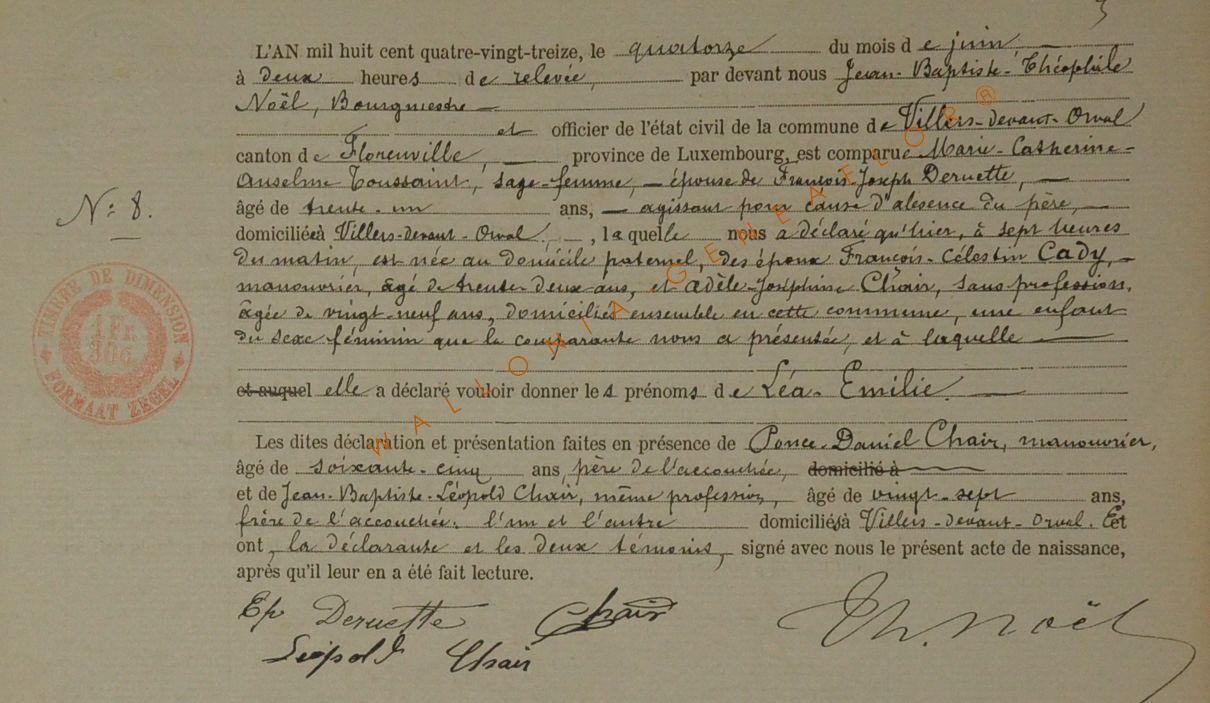 3
L'AN mil huit cent quatre-vingt-treize, le quatorze du mois de juin
à deux heures de relevée, par devant nous Jean-Baptiste-Théophile
Noël, Bourgmestre
et officier de l'état civil de la commune de Villers-devant-Orval
canton de Florenville, province de Luxembourg, est comparue Marie-Catherine-
Anselme Toussaint, sage-femme, épouse de François-Joseph Deruette,
N° 8.
âgé de trente-un ans, agissant pour cause d'absence du père,
domiciliée à Villers-devant-Orval, laquelle nous a déclaré qu'hier, à sept heures
du matin, est née au domicile paternel, des époux François-Célestin Cady,
manouvrier, âgé de trente-deux ans, et Adèle-Joséphine Chair, sans profession,
âgée de vingt-neuf ans, domiciliés ensemble en cette commune, une enfant
du sexe féminin que la comparante nous a présentée, et à laquelle
et auquel elle a déclaré vouloir donner les prénoms de Léa-Emilie.
Les dites déclaration et présentation faites en présence de Ponce-Daniel Chair, manouvrier,
âgé de soixante-cinq ans, père de l'accouchée, domicilié à
et de Jean-Baptiste-Léopold Chair, même profession, âgé de vingt-sept ans,
frère de l'accouchée, l'un et l'autre domiciliés à Villers-devant-Orval. Et
ont, la déclarante et les deux témoins, signé avec nous le présent acte de naissance,
après qu'il leur en a été fait lecture.
Ep Deruette Chair Th. Noël
Léopold Chair
TIMBRE DE DIMENSION
1 Fr.
30 c.
FORMAAT ZEGEL
WALLONIA-GENEALO®